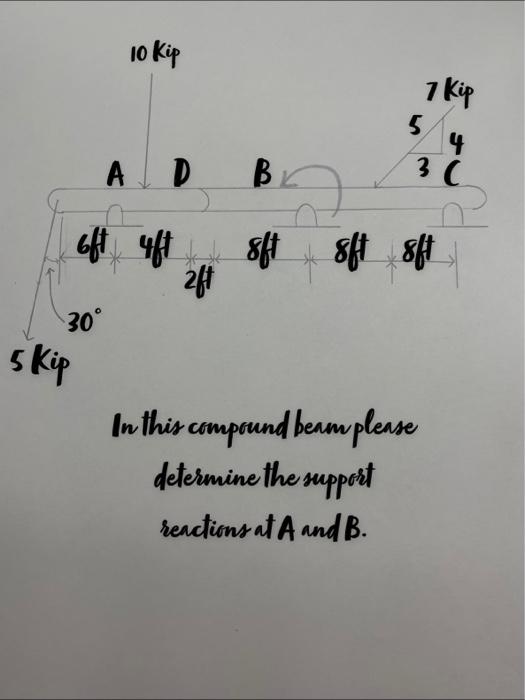 10 Kip
7 Kip
5
4
3
A D B C
6ft 4ft 2ft 8ft 8ft 8ft
30°
5 Kip
In this compound beam please
determine the support
reactions at A and B.